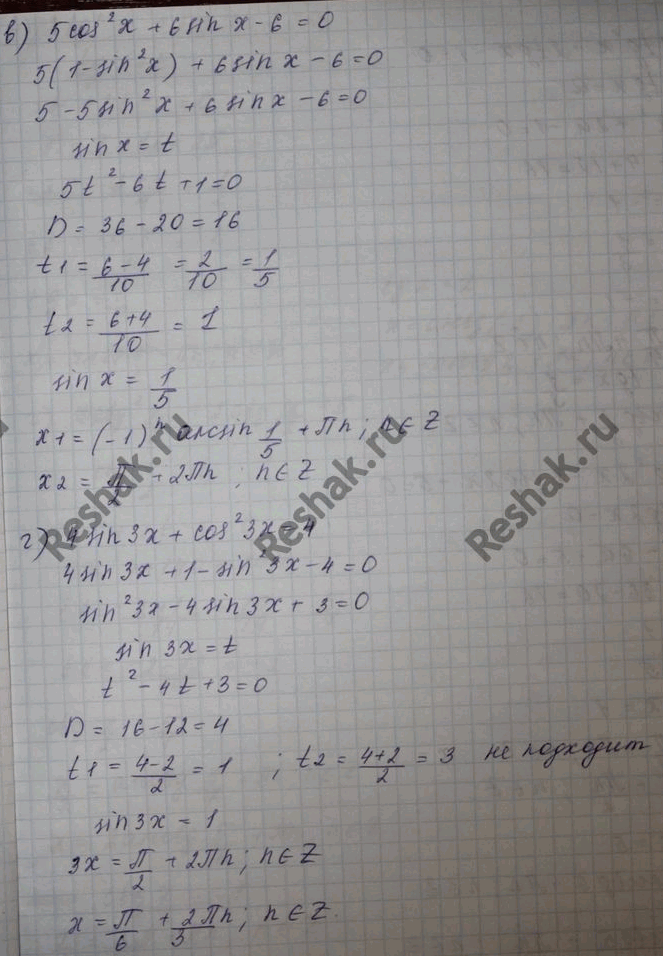 в) 5cos²x + 6sin x - 6 = 0
5(1-sin²x) + 6sin x - 6 = 0
5 - 5sin²x + 6sin x - 6 = 0
sin x = t
5t² - 6t + 1 = 0
D = 36 - 20 = 16
t1 = (6-4)/10 = 2/10 = 1/5
t2 = (6+4)/10 = 1
sin x = 1/5
x1 = (-1)ⁿ arcsin 1/5 + Пn; n ∈ Z
x2 = П/2 + 2Пn; n ∈ Z
Reshak.ru Reshak.ru Reshak.ru
г) 4sin 3x + cos²3x = 4
4sin 3x + 1 - sin²3x - 4 = 0
sin²3x - 4sin 3x + 3 = 0
sin 3x = t
t² - 4t + 3 = 0
D = 16 - 12 = 4
t1 = (4-2)/2 = 1 ; t2 = (4+2)/2 = 3 не подходит
sin 3x = 1
3x = П/2 + 2Пn; n ∈ Z
x = П/6 + 2Пn/3; n ∈ Z.